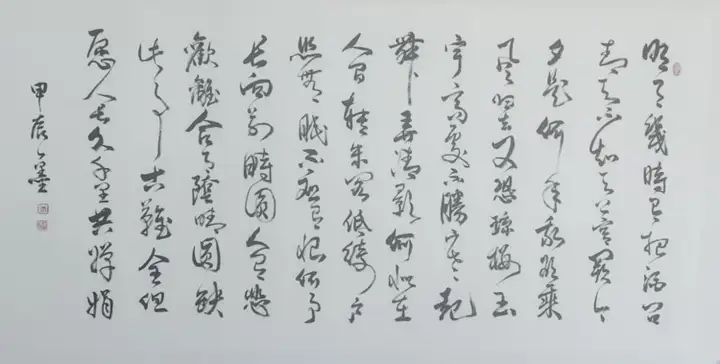 明月幾時有把酒問
青天不知天上宮闕今
夕是何年我欲乘
風歸去又恐瓊樓玉
宇高處不勝寒起
舞弄清影何似在
人間轉朱閣低綺戶
照無眠不應有恨何事
長向別時圓人有悲
歡離合月陰晴圓缺
此事古難全但
願人長久千里共嬋娟
甲辰